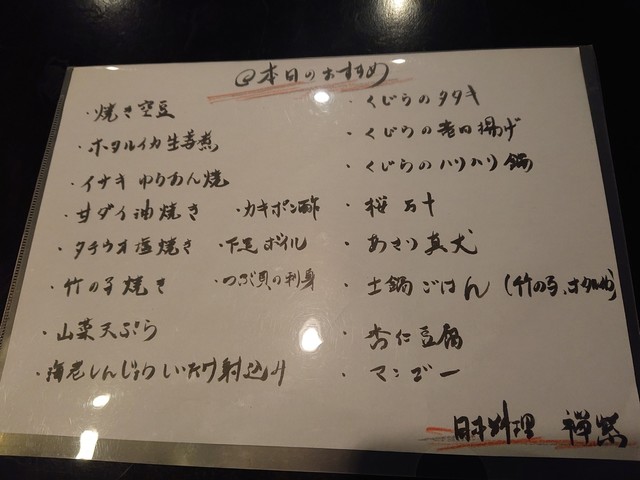 @本日のおすすめ
・焼き空豆
・ホタルイカ生姜煮
・イサキゆうあん焼
・甘ダイ油焼き
・カキポン酢
・タチウオ塩焼き
・下足ボイル
・竹の子焼き
・つぶ貝の刺身
・山菜天ぷら
・海老しんじょうしいたけ射込み
・くじらのタタキ
・くじらの竜田揚げ
・くじらのハリハリ鍋
・桜万十
・あさり真丈
・土鍋ごはん(竹の子、ホタルイカ)
・杏仁豆腐
・マンゴー
日本料理